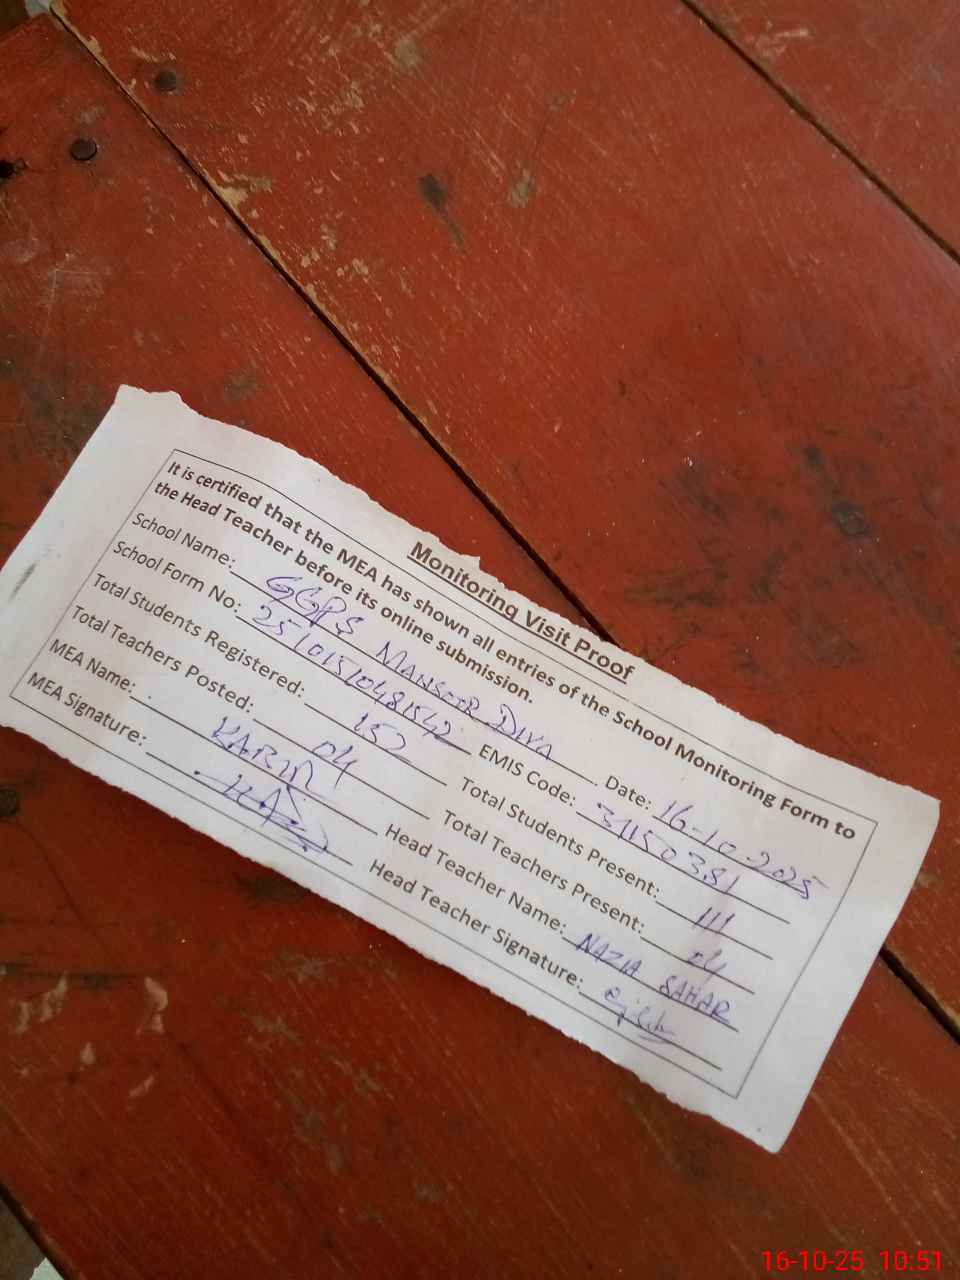 Monitoring Visit Proof
It is certified that the MEA has shown all entries of the School Monitoring Form to
the Head Teacher before its online submission.
School Name: GGPS MANSOOR DIYA Date: 16-10-2025
School Form No: EMIS Code: 31150381
Total Students Registered: 152 Total Students Present: 111
Total Teachers Posted: 04 Total Teachers Present: 04
MEA Name: KABIR Head Teacher Name: NAZIA SAHAR
MEA Signature: Head Teacher Signature:
16-10-25 10:51